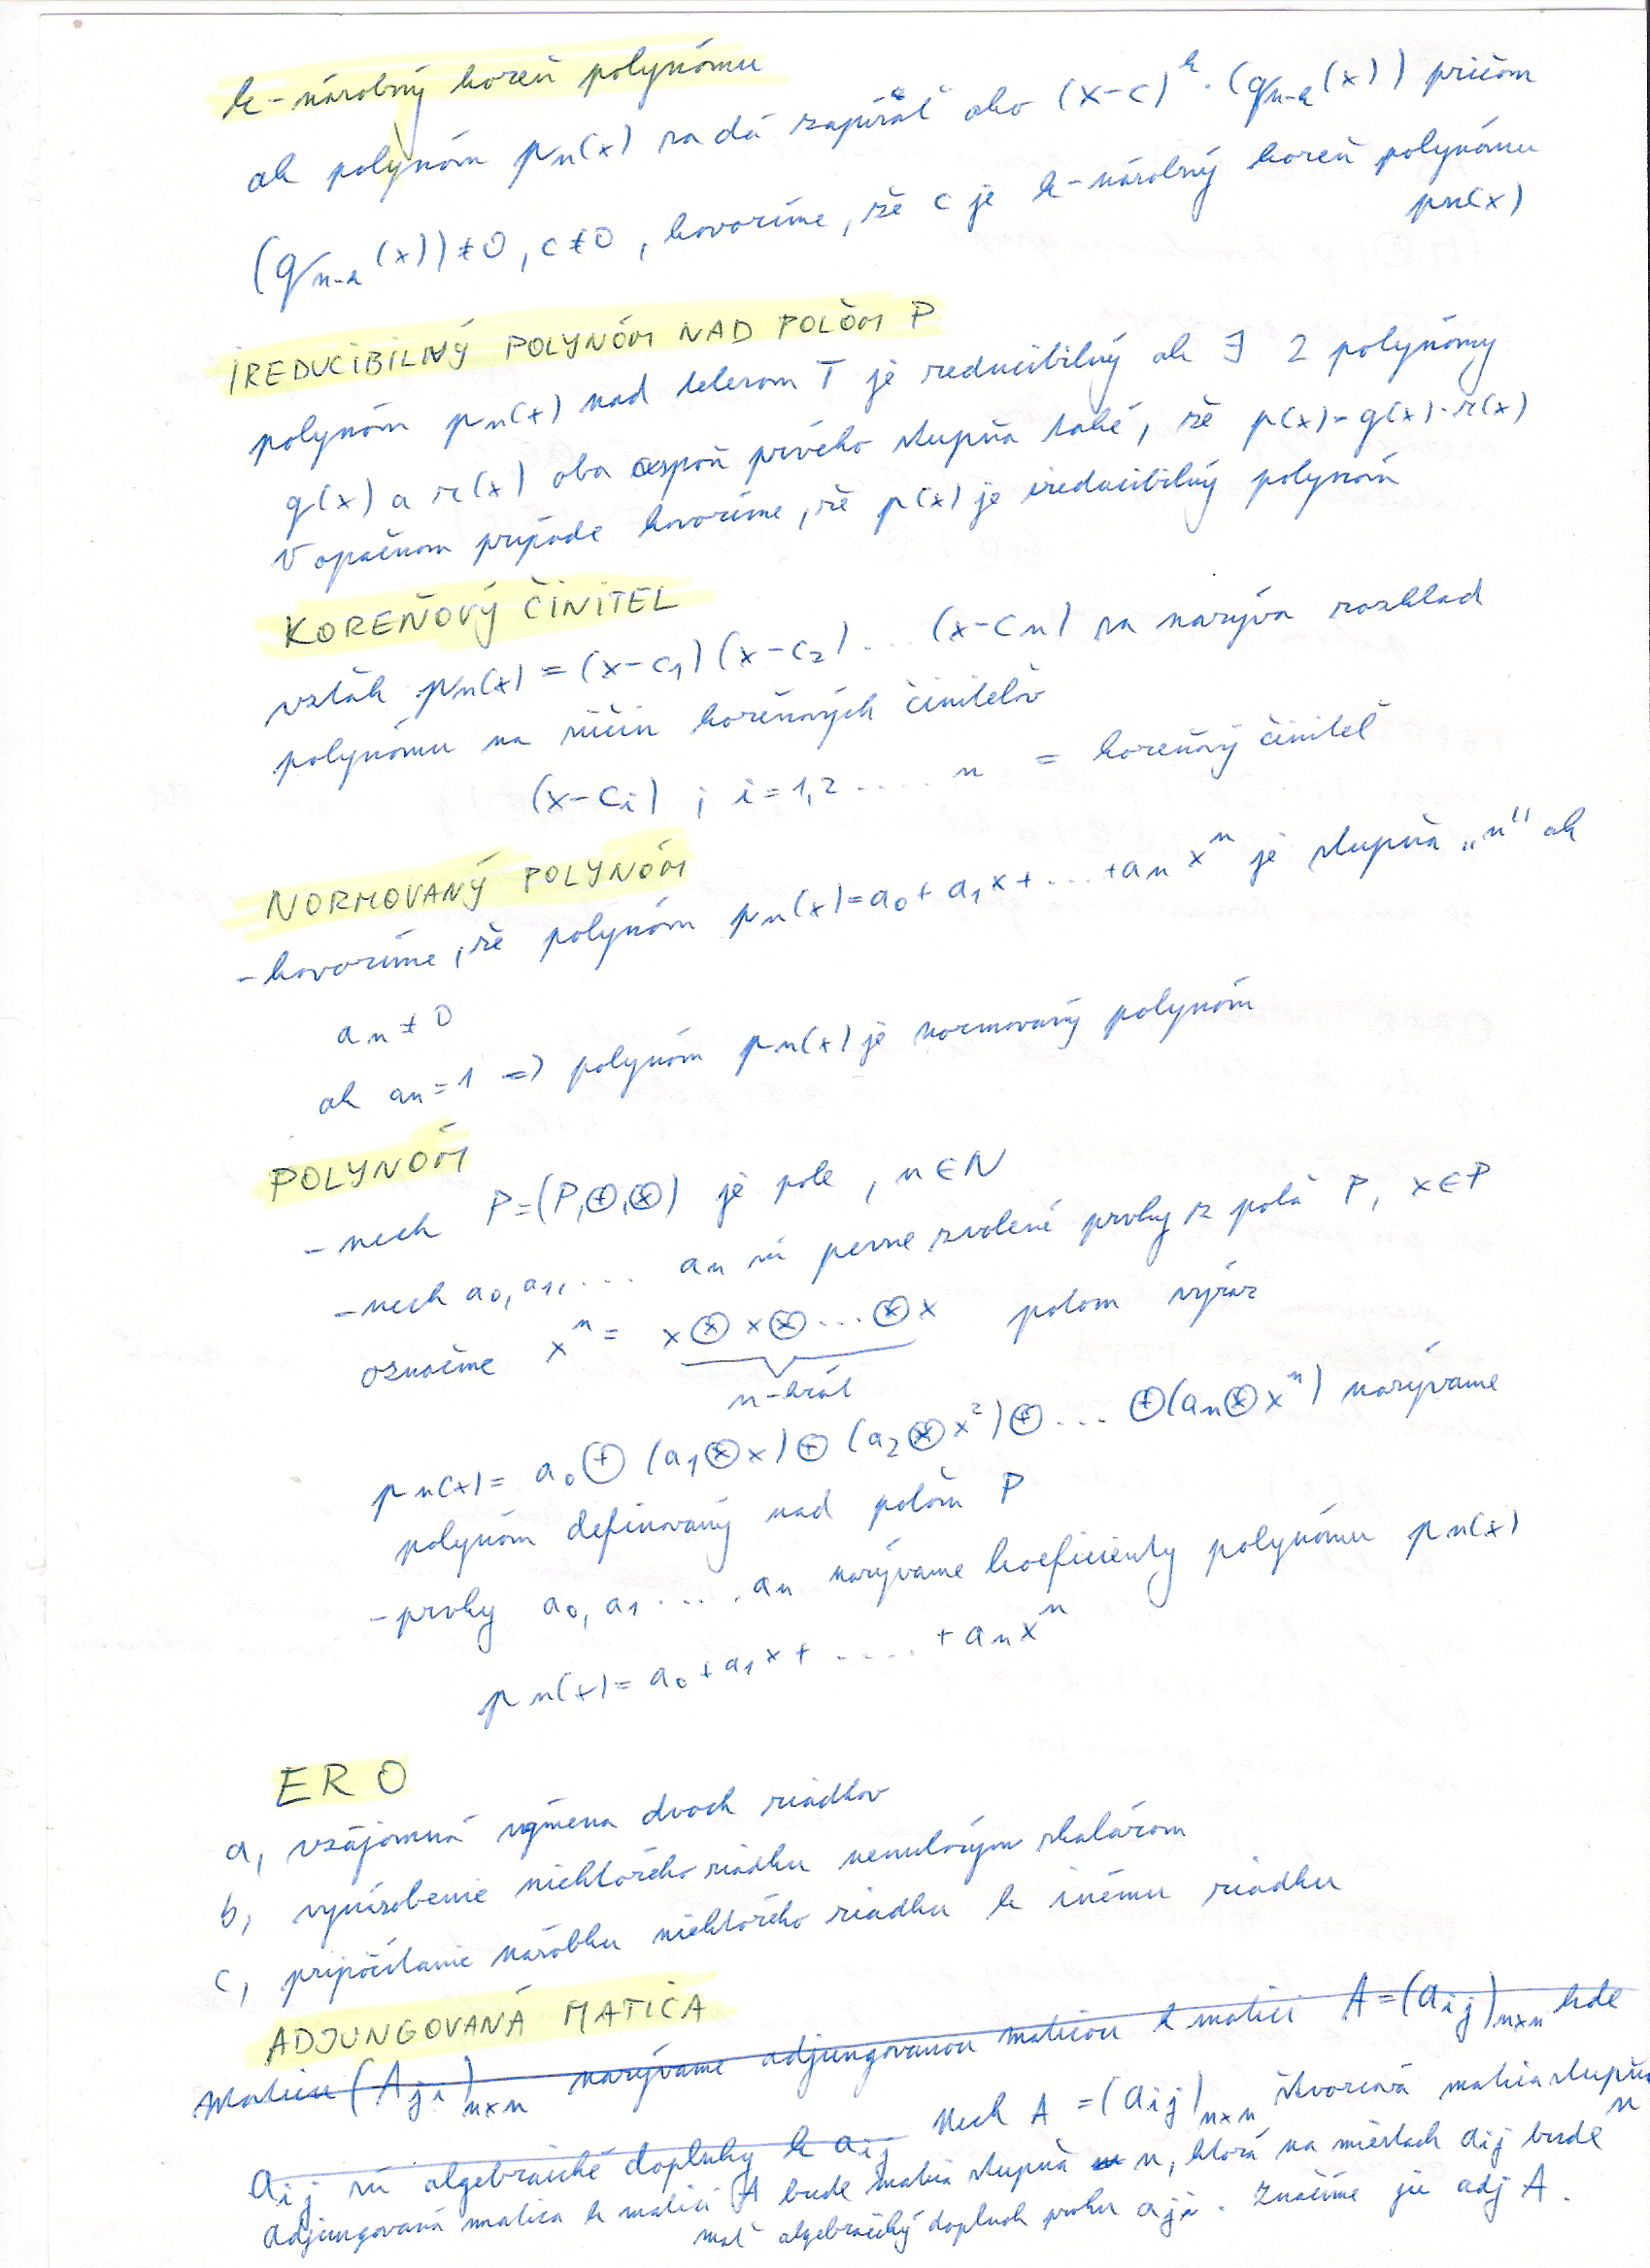 k-násobný koreň polynómu
ak polynóm pn(x) sa dá zapísať ako (x-c)^k . (q_{n-k}(x)) pričom
(q_{n-k}(x)) ≠ 0, c ≠ 0, hovoríme, že c je k-násobný koreň polynómu
pn(x)
IREDUCIBILNÝ POLYNÓM NAD POĽOM P
polynóm pn(x) nad telesom T je reducibilný ak ∃ 2 polynómy
q(x) a r(x) oba aspoň prvého stupňa také, že p(x) = q(x) . r(x)
V opačnom prípade hovoríme, že p(x) je ireducibilný polynóm
KOREŇOVÝ ČINITEL
vzťah pn(x) = (x-c₁)(x-c₂) ... (x-cn) sa nazýva rozklad
polynómu na súčin koreňových činiteľov
(x-ci) ; i = 1,2 .... n = koreňový činiteľ
NORMOVANÝ POLYNÓM
- hovoríme, že polynóm pn(x) = a₀ + a₁x + ... + an x^n je stupňa „n" ak
an ≠ 0
ak an = 1 => polynóm pn(x) je normovaný polynóm
POLYNÓM
- nech P = (P, ⊕, ⊗) je pole, n ∈ N
- nech a₀, a₁, ... an sú pevne zvolené prvky z poľa P, x ∈ P
označme x^n = x ⊗ x ⊗ ... ⊗ x potom výraz
n-krát
pn(x) = a₀ ⊕ (a₁ ⊗ x) ⊕ (a₂ ⊗ x²) ⊕ ... ⊕ (an ⊗ x^n) nazývame
polynóm definovaný nad poľom P
- prvky a₀, a₁ .... an nazývame koeficienty polynómu pn(x)
pn(x) = a₀ + a₁x + ..... + an x^n
ERO
a, vzájomná výmena dvoch riadkov
b, vynásobenie niektorého riadku nenulovým skalárom
c, pripočítanie násobku niektorého riadku k inému riadku
ADJUNGOVANÁ MATICA
Maticu (Aji)n×n nazývame adjungovanou maticou k matici A = (aij)n×n kde
aij sú algebraické doplnky k aij Nech A = (aij)n×n štvorcová matica stupňa n
adjungovaná matica k matici A bude matica stupňa n, ktorá na miestach aij bude
mať algebraický doplnok prvku aji. Značíme ju adj A.